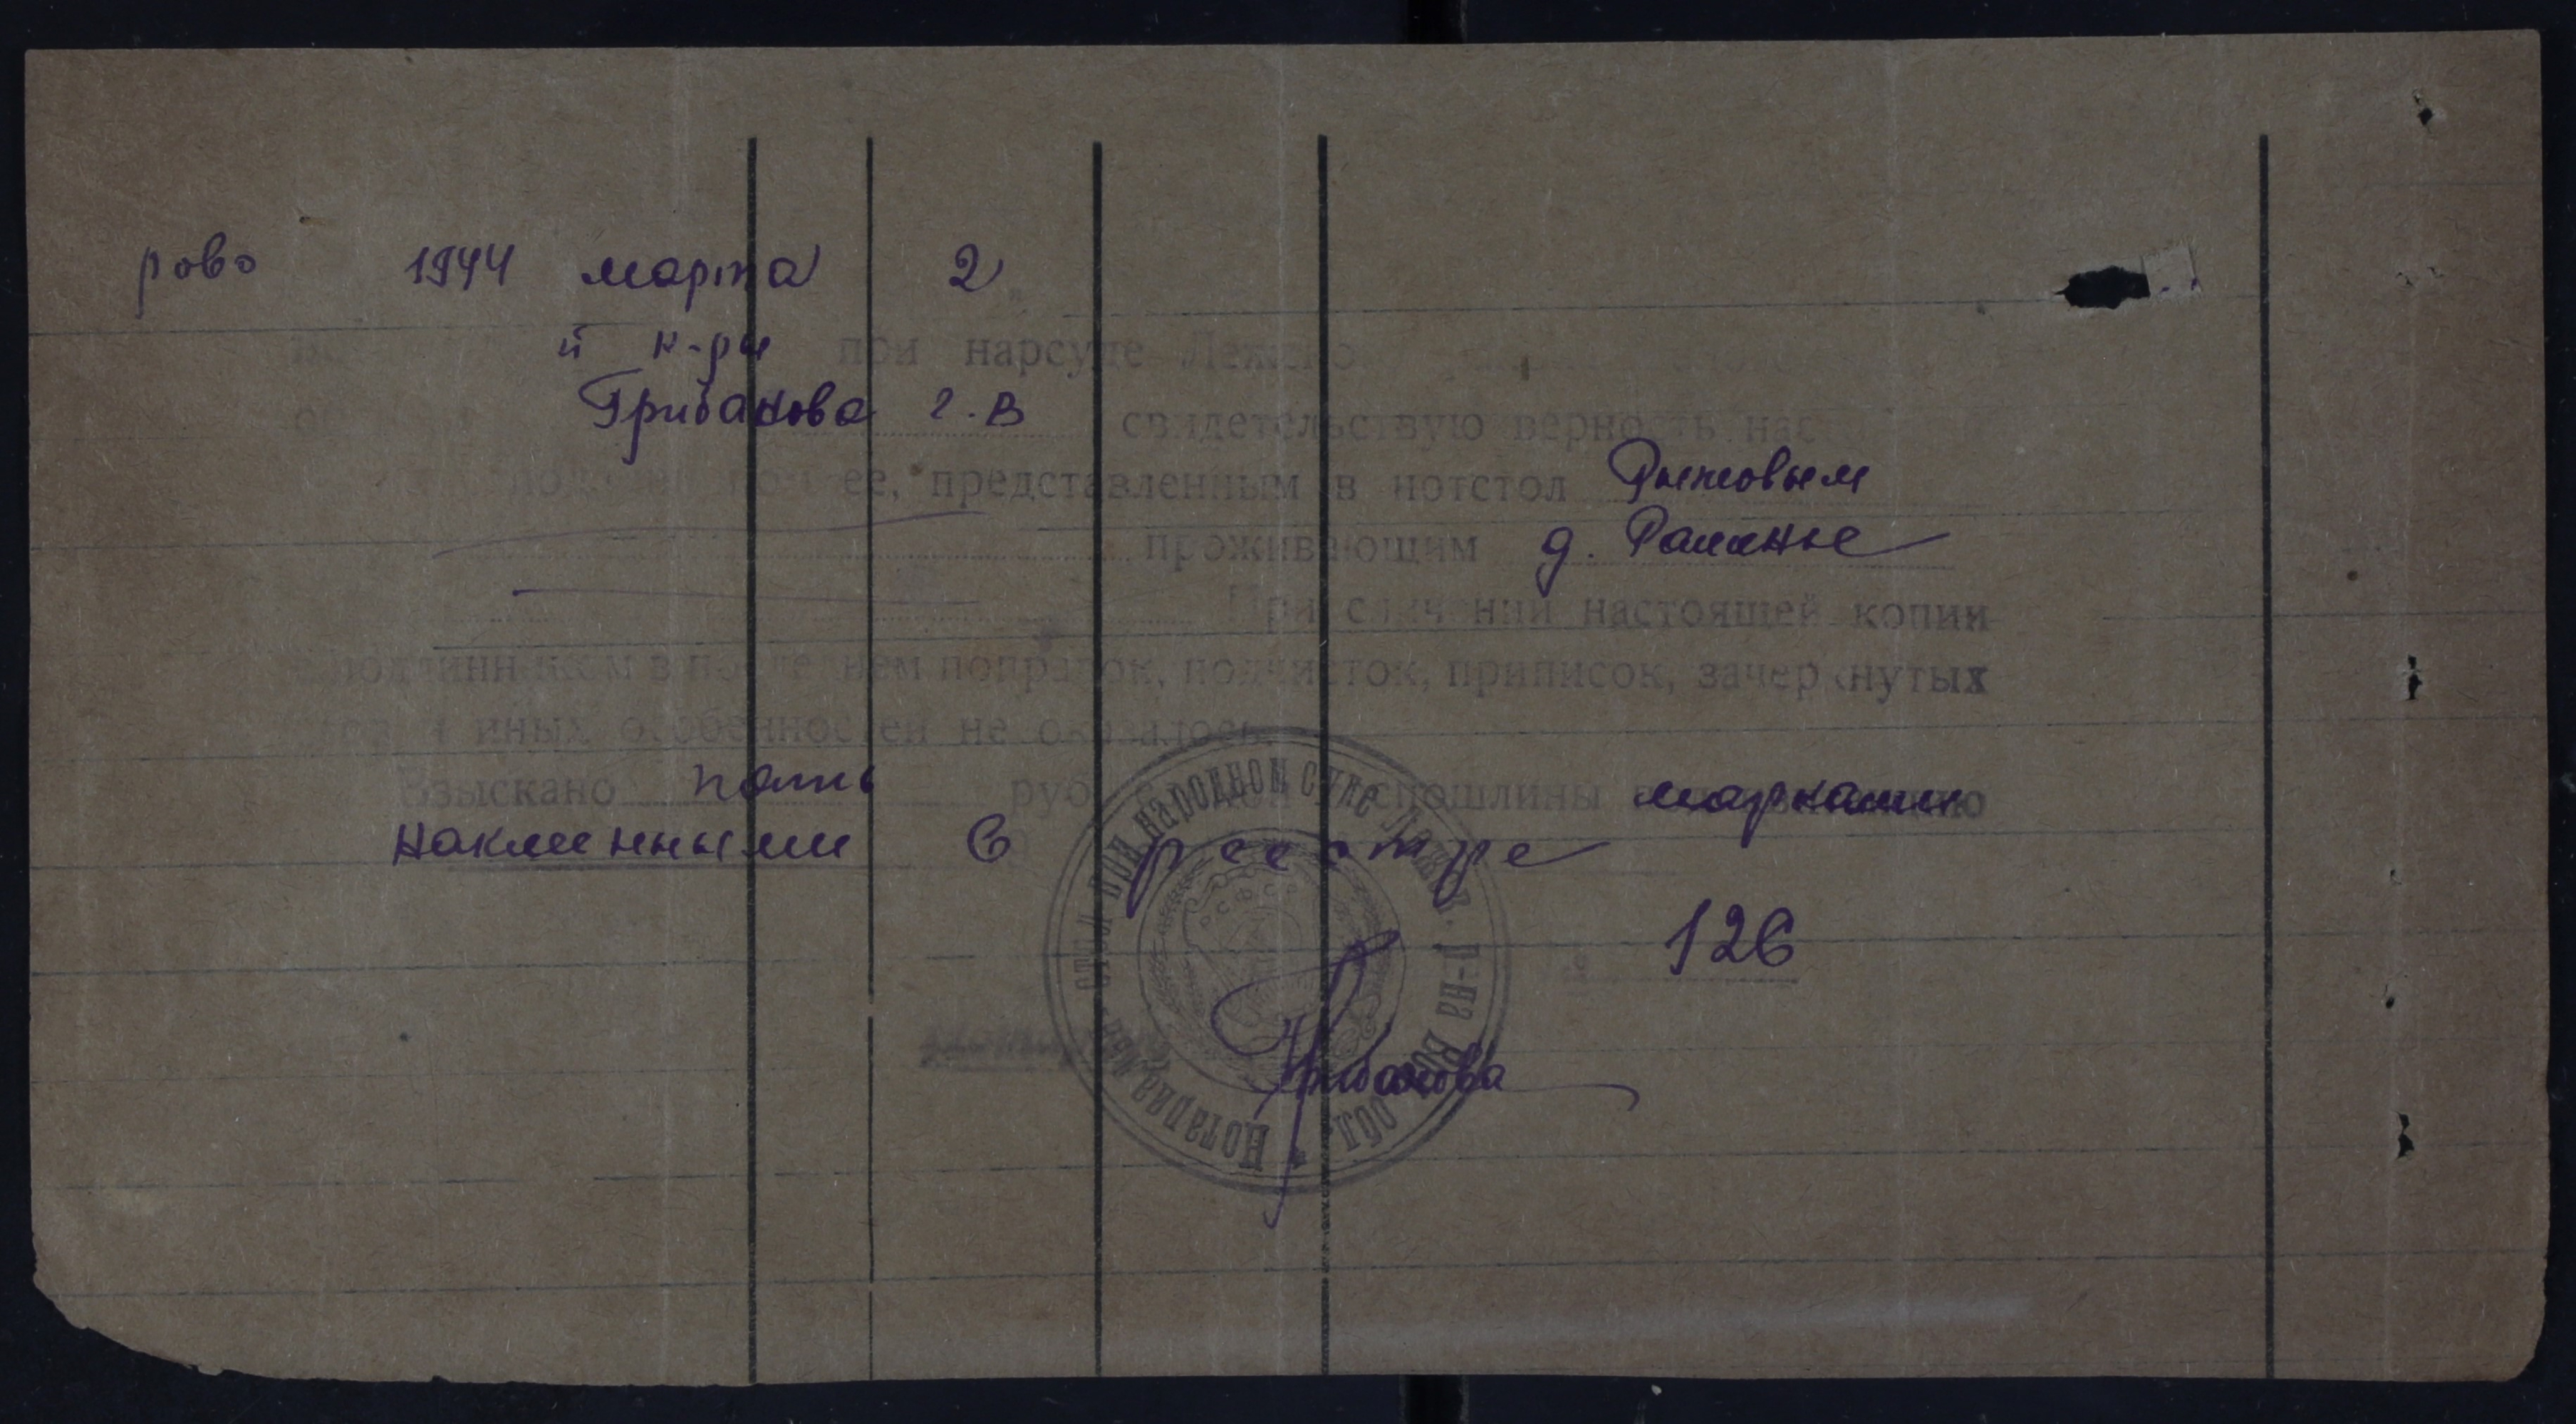 рово 1944 марта 2
й к-ры при нарсуде Лежско
Грибанова Г.В свидетельствую верность наст
ее, представленным в нотстол Рыжовым
проживающим д. Раменье
При сличении настоящей копии
с подлинником в последнем поправок, подчисток, приписок, зачеркнутых
слов и иных особенностей не оказалось.
Взыскано пять руб. госпошлины марками
наклеенными в реестре
126
Грибанова
Нотариальн. стол при народном суде Лежск. р-на Вол. обл.